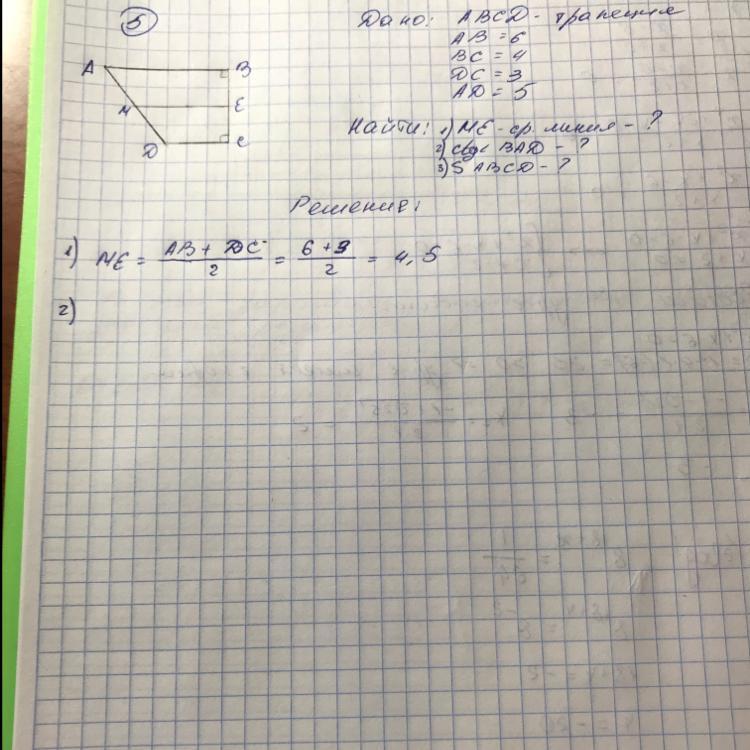 5
Дано: ABCD - трапеция
AB = 6
BC = 4
DC = 3
AD = 5
A B
M E
D C
Найти: 1) ME - ср. линия - ?
2) ctg< BAD - ?
3) S ABCD - ?
Решение:
1) ME = AB + DC / 2 = 6 + 3 / 2 = 4,5
2)